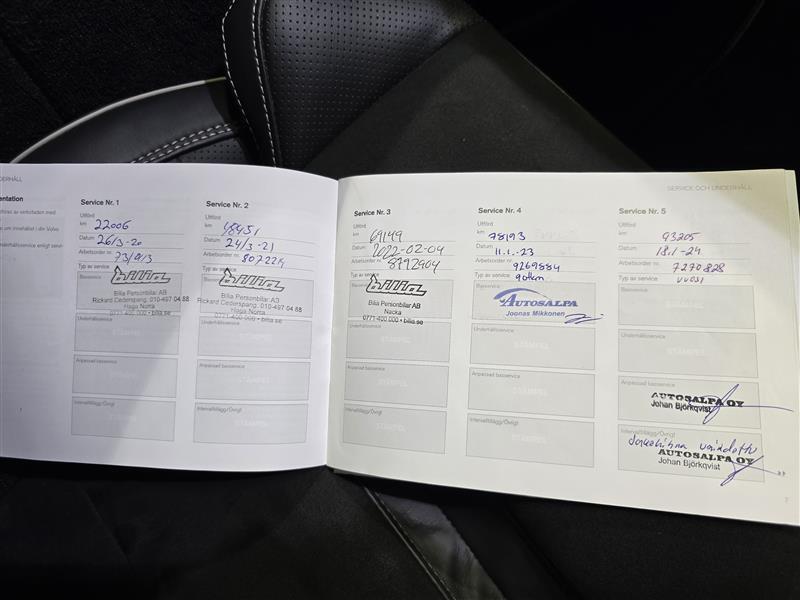 DERHÅLL
entation
Service Nr. 1
Utfört
km 22006
Datum 26/3-20
Arbetsorder nr
Typ av service
bilia
Basservice
Bilia Personbilar AB
Rickard Cederspang, 010-497 04 88
Haga Norra
0771-400 000 • bilia.se
Underhållsservice
STÄMPEL
Anpassad basservice
STÄMPEL
Intervalltillägg/Övrigt
STÄMPEL
Service Nr. 2
Utfört
km 48451
Datum 24/3-21
Arbetsorder nr 807224
Typ av service
bilia
Basservice
Bilia Personbilar AB
Rickard Cederspang, 010-497 04 88
Haga Norra
0771-400 000 • bilia.se
Underhållsservice
STÄMPEL
Anpassad basservice
STÄMPEL
Intervalltillägg/Övrigt
STÄMPEL
SERVICE OCH UNDERHÅLL
Service Nr. 3
Utfört
km 69149
Datum 2022-02-04
Arbetsorder nr 8792904
Typ av service
bilia
Basservice
Bilia Personbilar AB
Nacka
0771-400 000 • bilia.se
Underhållsservice
STÄMPEL
Anpassad basservice
STÄMPEL
Intervalltillägg/Övrigt
STÄMPEL
Service Nr. 4
Utfört
km 78193
Datum 11.1.-23
Arbetsorder nr 9269884
Typ av service 90tkm
Basservice
AUTOSALPA
Joonas Mikkonen
Underhållsservice
STÄMPEL
Anpassad basservice
STÄMPEL
Intervalltillägg/Övrigt
STÄMPEL
Service Nr. 5
Utfört
km 93205
Datum 18.1-24
Arbetsorder nr 7270828
Typ av service
Basservice
STÄMPEL
Underhållsservice
STÄMPEL
Anpassad basservice
AUTOSALPA OY
Johan Björkqvist
Intervalltillägg/Övrigt
AUTOSALPA OY
Johan Björkqvist
>>
7